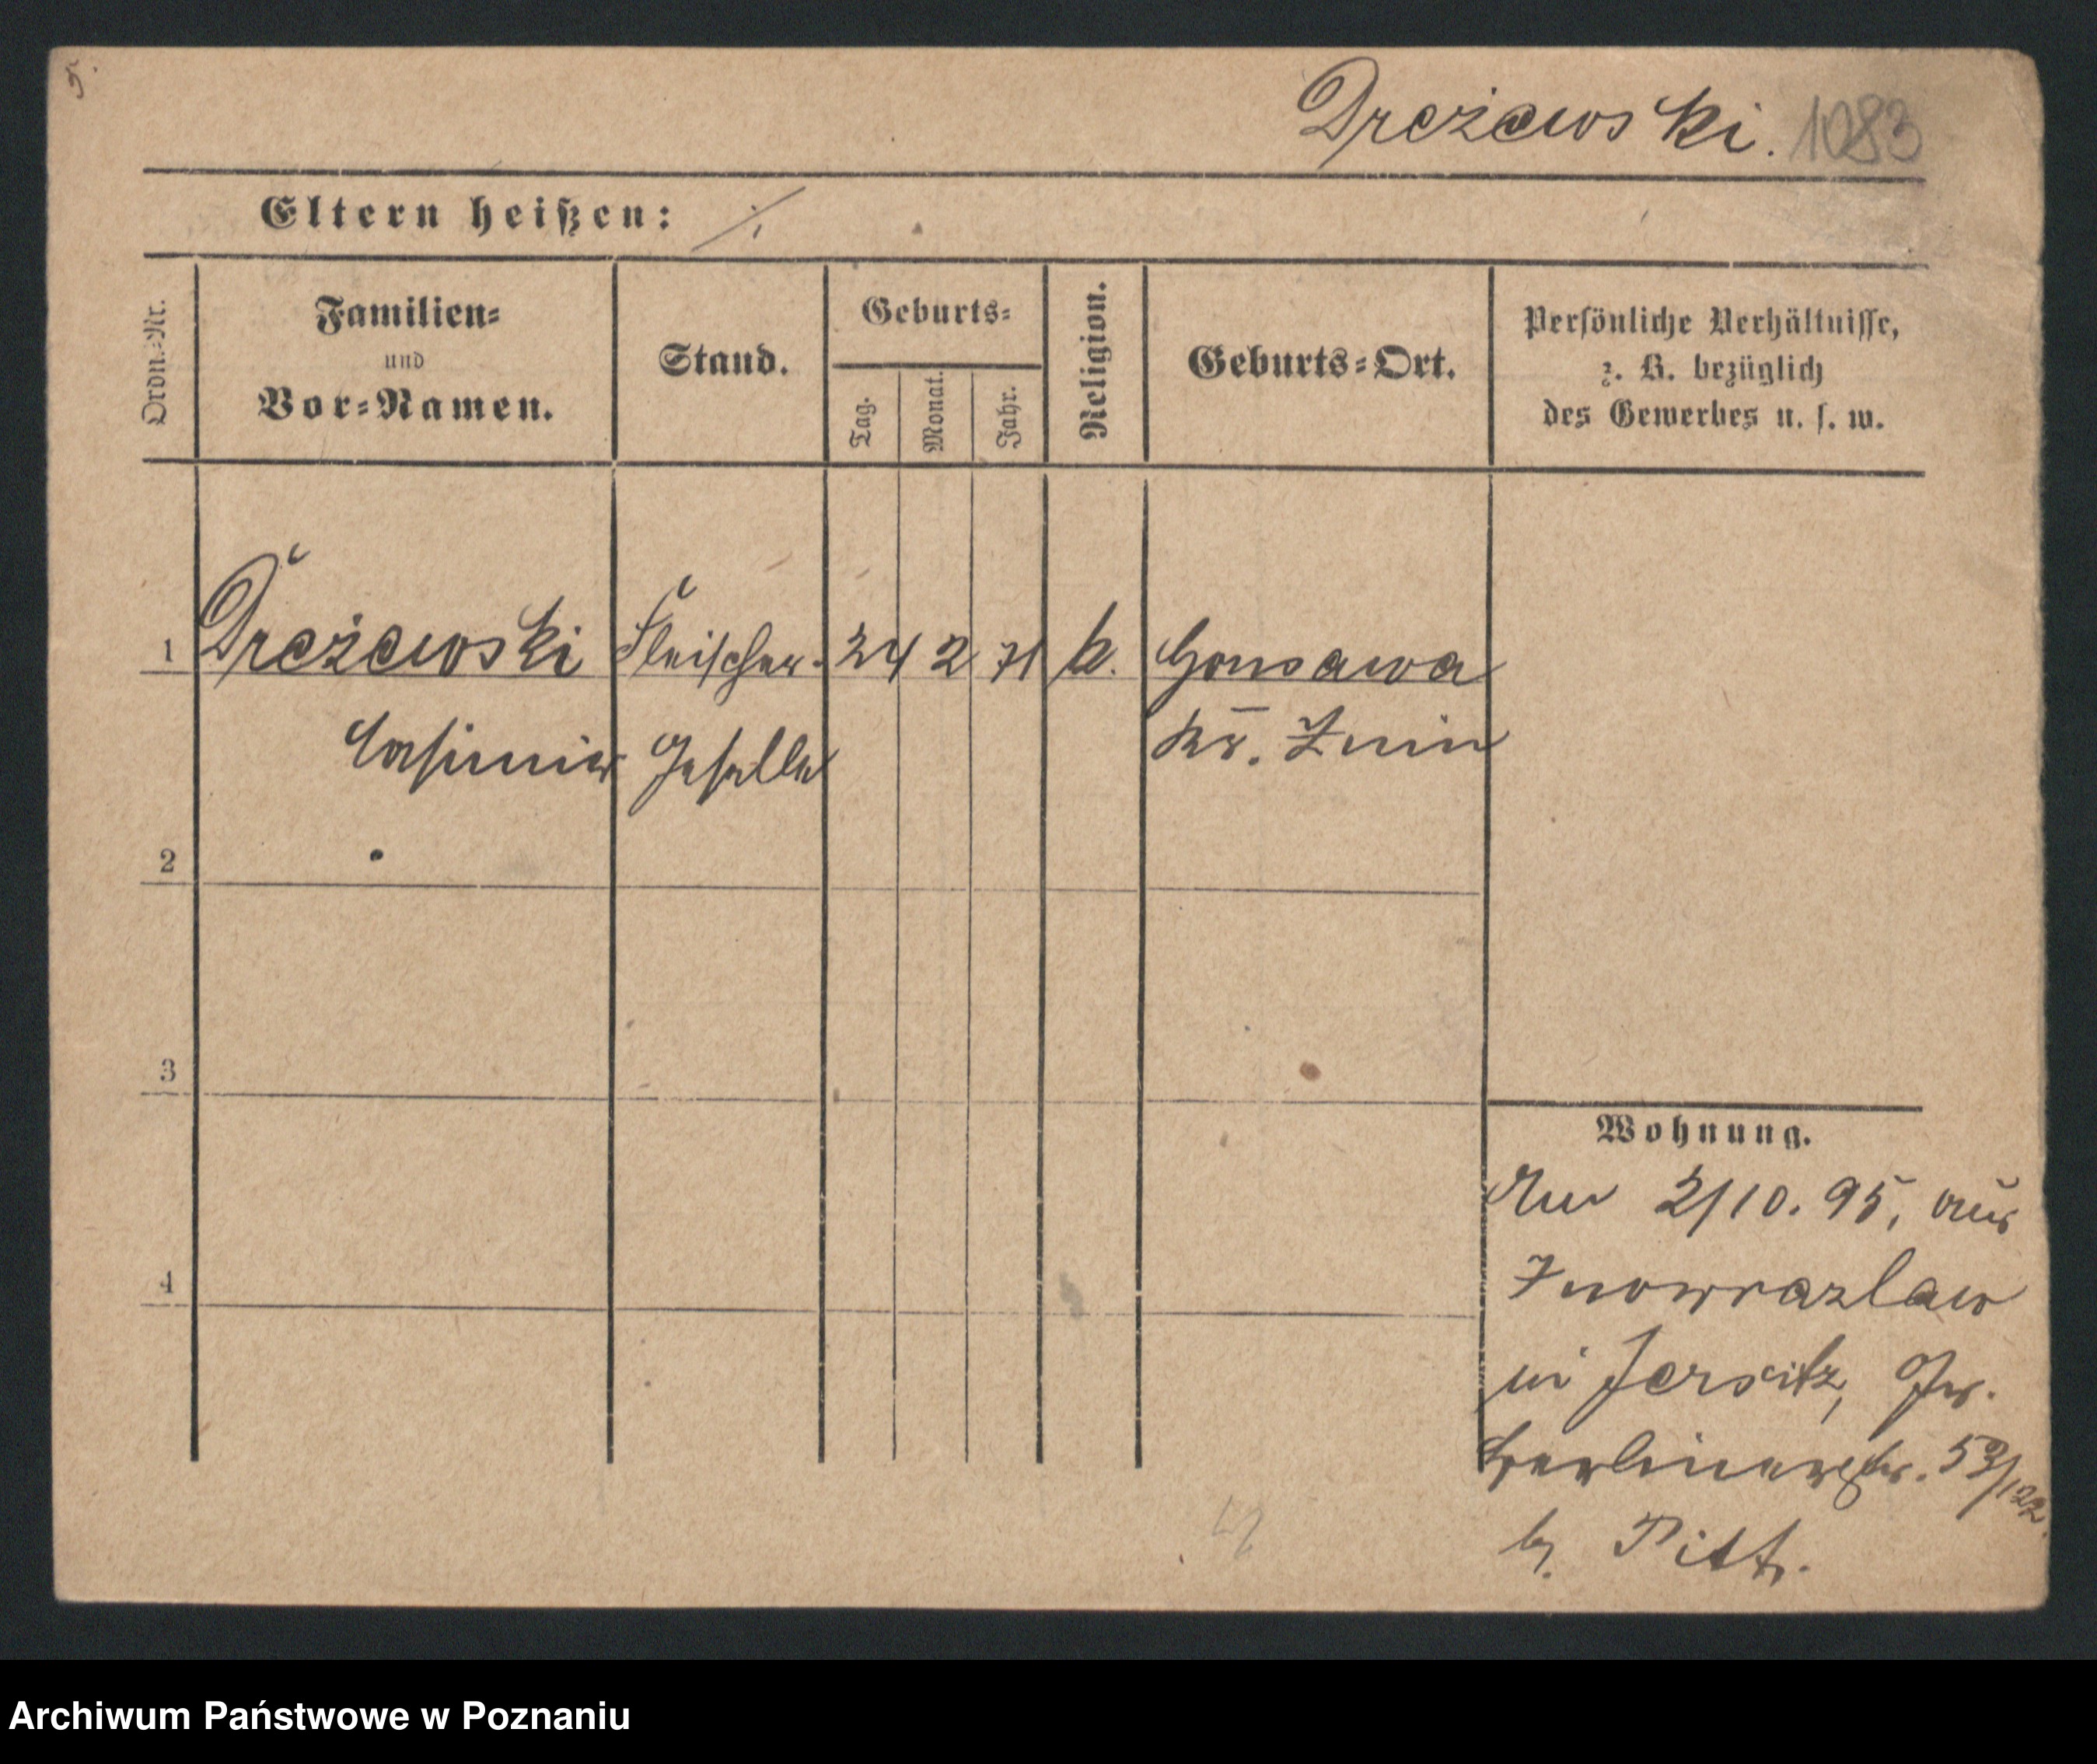 Dreżewski. 1083
Eltern heißen: ./.
Ordn.-Nr.
Familien-
und
Vor-Namen.
Stand.
Geburts-
Tag.
Monat.
Jahr.
Religion.
Geburts-Ort.
Persönliche Verhältnisse,
z. B. bezüglich
des Gewerbes u. s. w.
1 Dreżewski Fleischer- 24 2 71 k. Gonsawa
Casimir Geselle Kr. Znin
2
3
4
Wohnung.
Am 2/10. 95, aus
Inowrazlaw
in Jersitz, Gr.
Berlinerstr. 53/122.
b. Pitt.
Archiwum Państwowe w Poznaniu